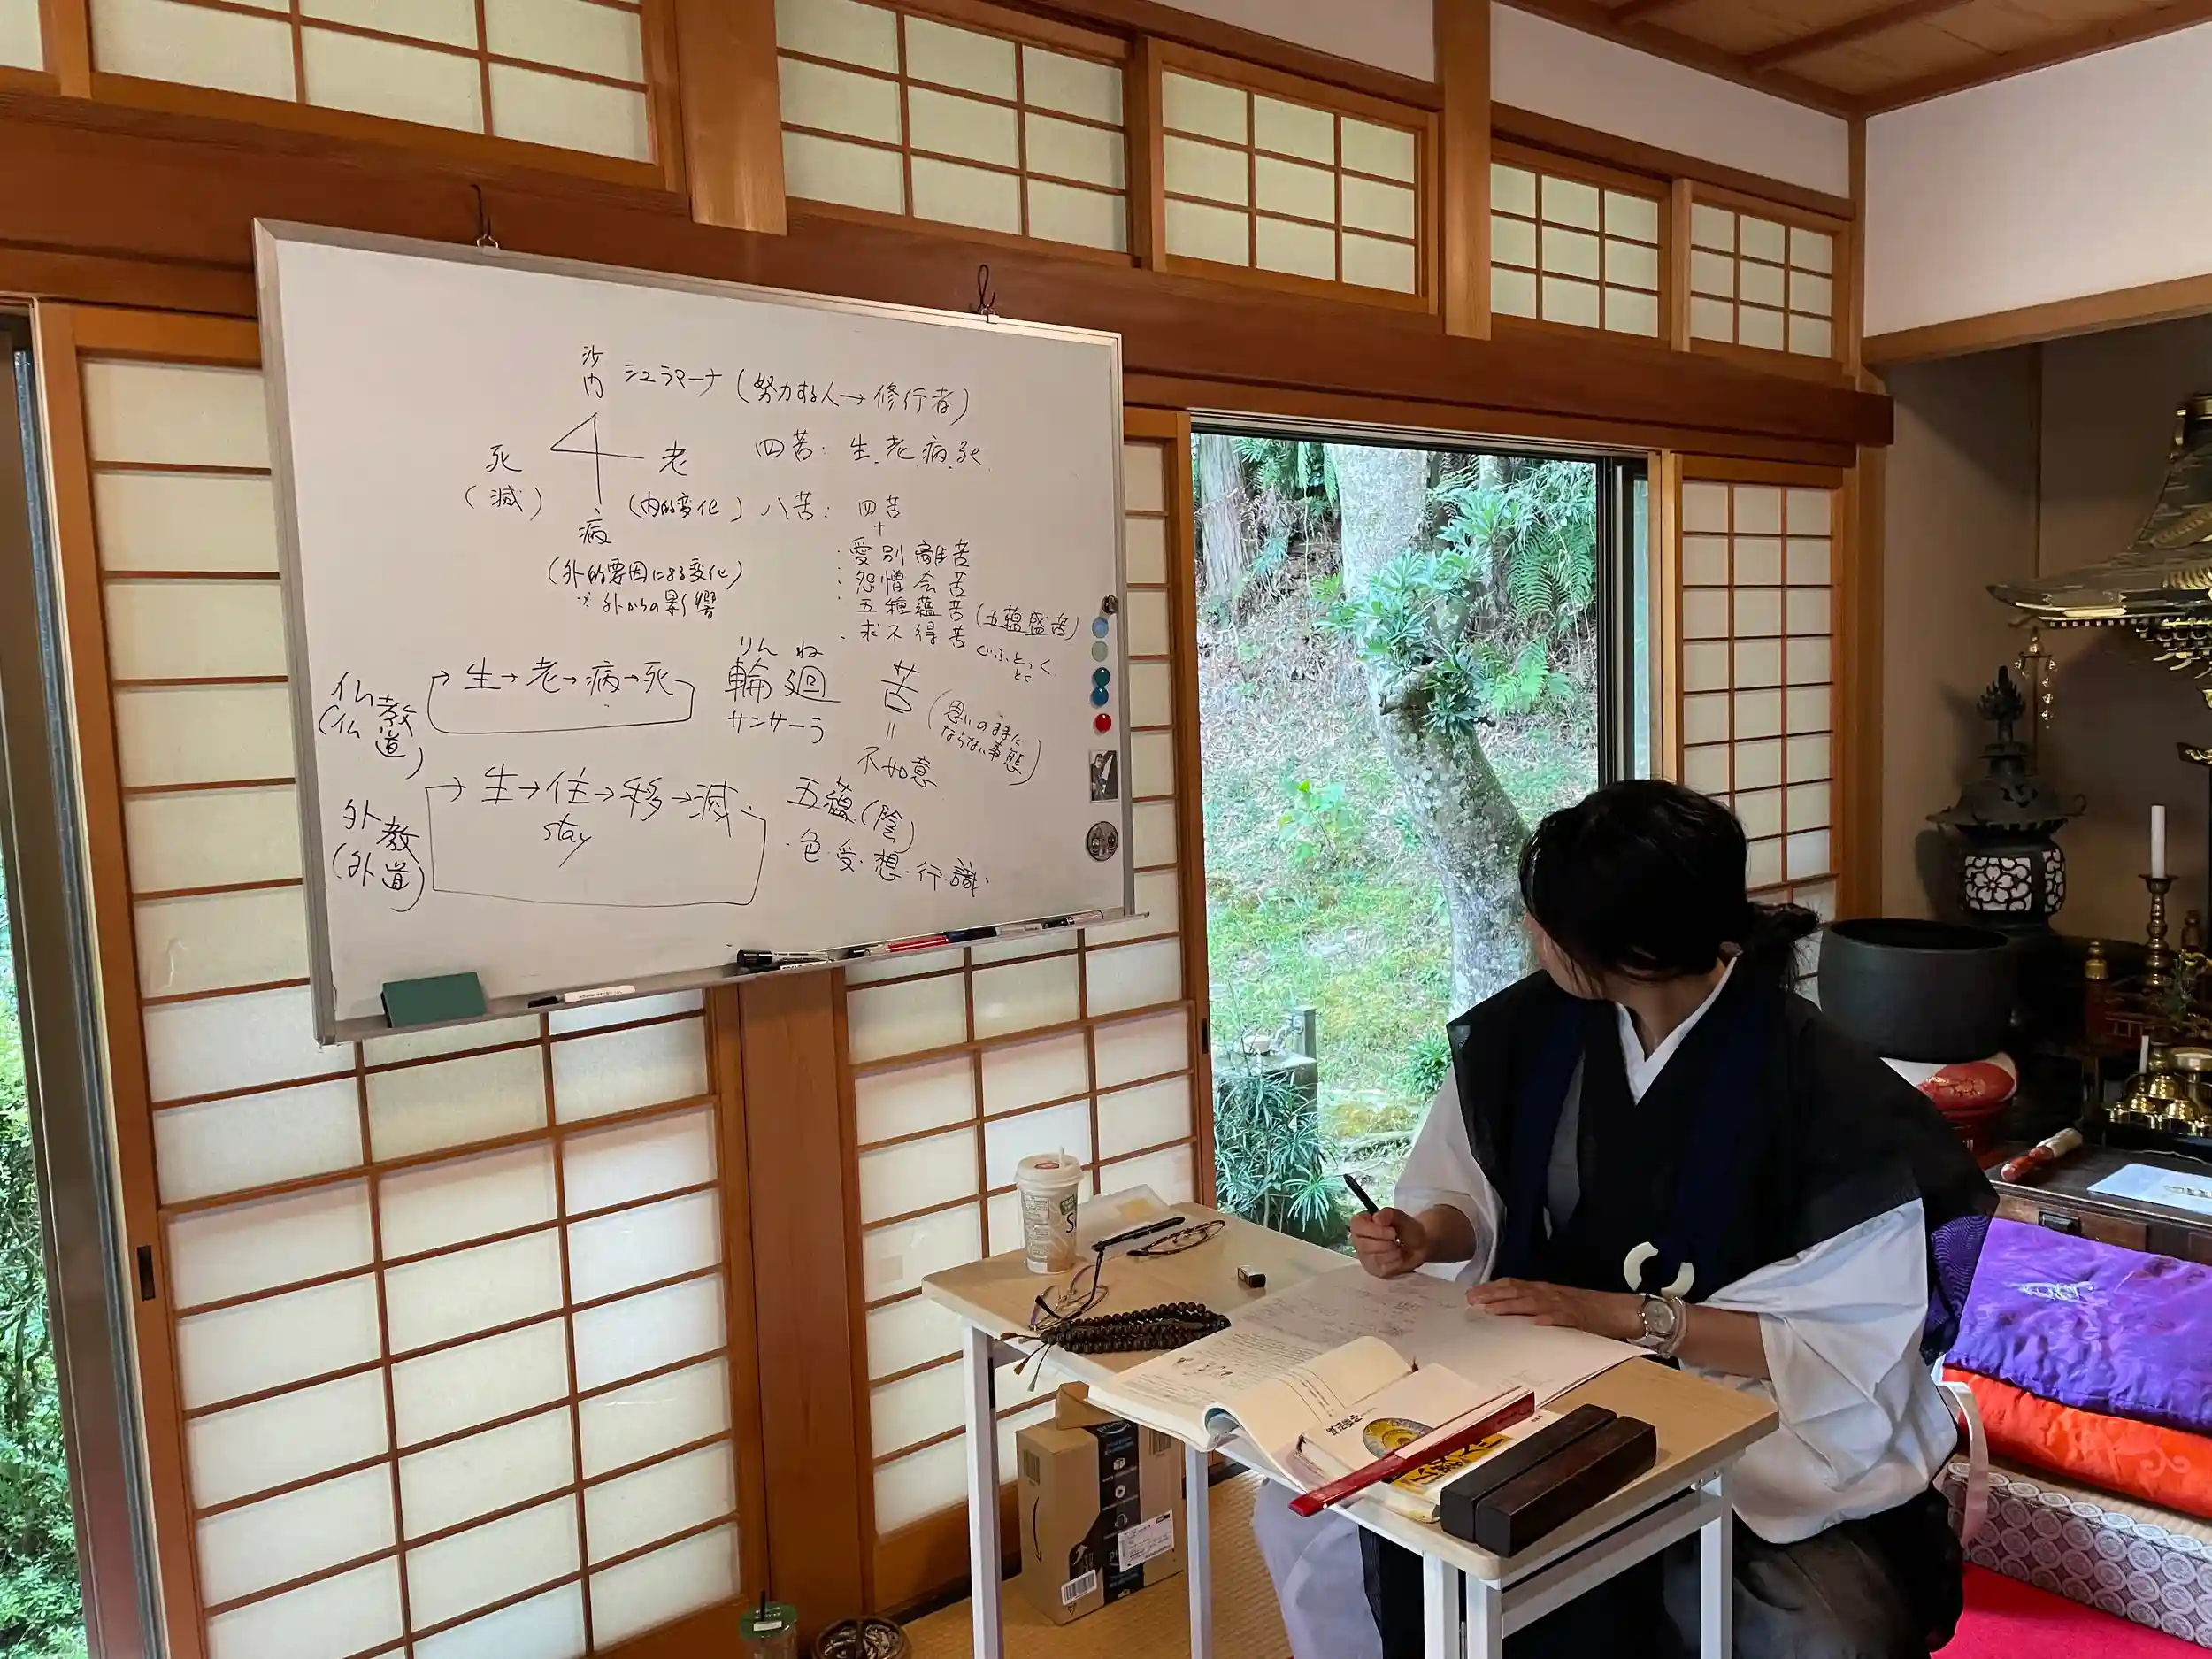 沙内 シュラマーナ (努力する人→修行者)
死 老 四苦: 生.老.病.死.
(滅) (内的変化) 八苦: 四苦
病 +
(外的要因による変化) ・愛別離苦
※外からの影響 ・怨憎会苦
・五種蘊苦 (五蘊盛苦)
・求不得苦 ぐふとっく
とく
りんね
仏教 →生→老→病→死 輪廻 苦 (思いのままに
(仏道) サンサーラ = ならない事態)
不如意
外教 →生→住→移→滅 五蘊(陰)
(外道) stay ・色・受・想・行・識